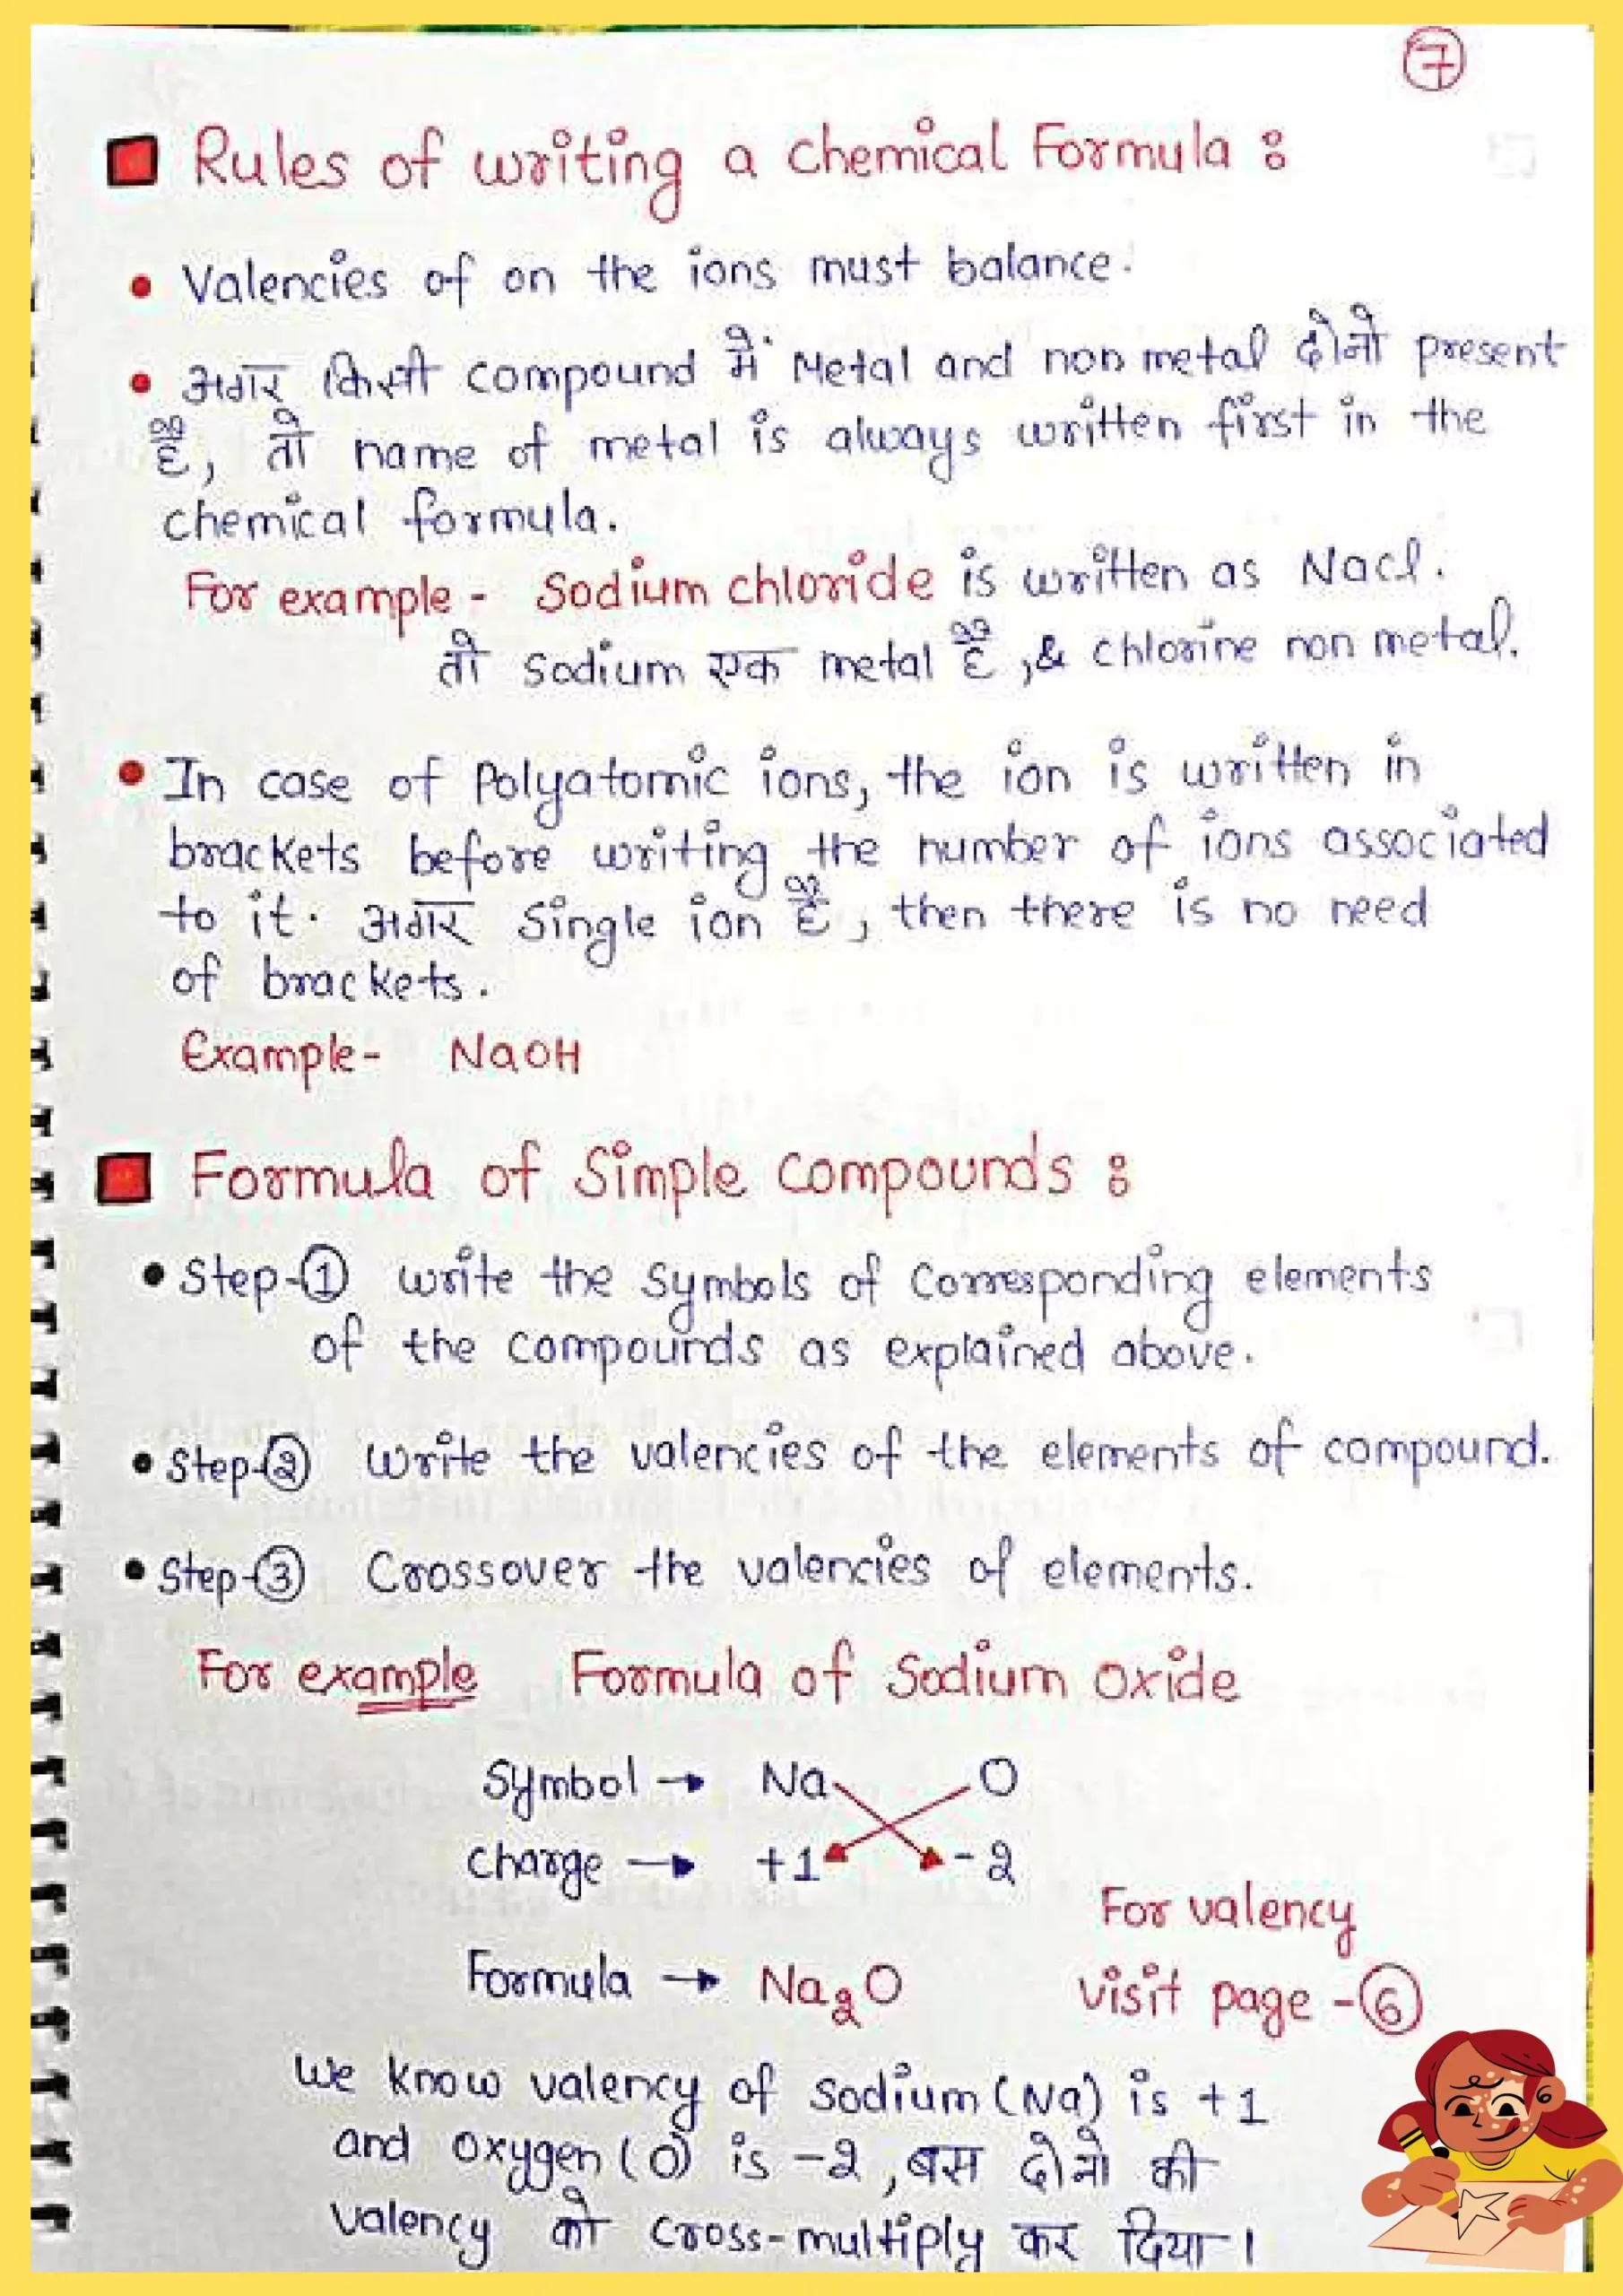 7
Rules of writing a chemical Formula :
• Valencies of on the ions must balance.
• अगर किसी compound में Metal and non metal दोनो present
हैं, तो name of metal is always written first in the
chemical formula.
For example - Sodium chloride is written as Nacl.
तो sodium एक metal हैं ,& chlorine non metal.
• In case of Polyatomic ions, the ion is written in
brackets before writing the number of ions associated
to it. अगर Single ion हैं, then there is no need
of brackets.
Example- NaOH
Formula of Simple Compounds :
• Step-① write the Symbols of Corresponding elements
of the compounds as explained above.
• Step-② Write the valencies of the elements of compound.
• Step-③ Crossover the valencies of elements.
For example Formula of Sodium Oxide
Symbol → Na O
Charge → +1 -2
For valency
Formula → Na₂O visit page -⑥
We know valency of Sodium (Na) is +1
and oxygen (O) is -2 ,बस दोनो की
valency को cross-multiply कर दिया।